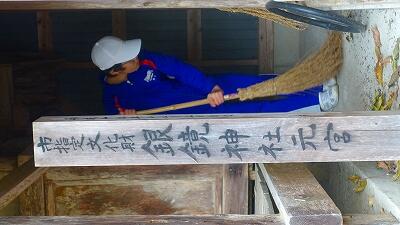 市指定文化財 銀鏡神社元宮